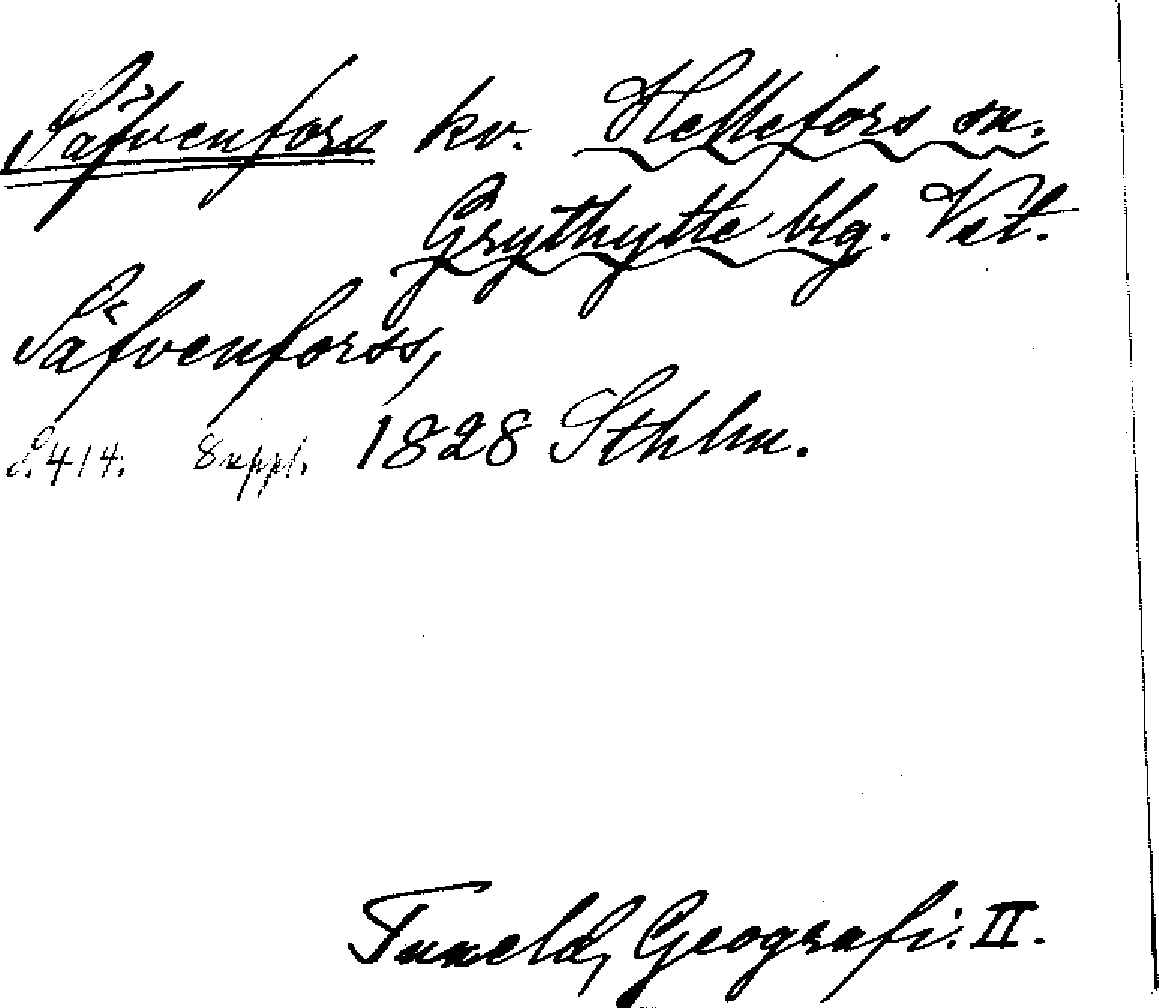 Säfvenfors kv. Hellefors sn.
Grythytte blg. Vst.
Säfvenforss,
S. 414. Suppl. 1828 Sthlm.
Tuneld, Geografi: II.